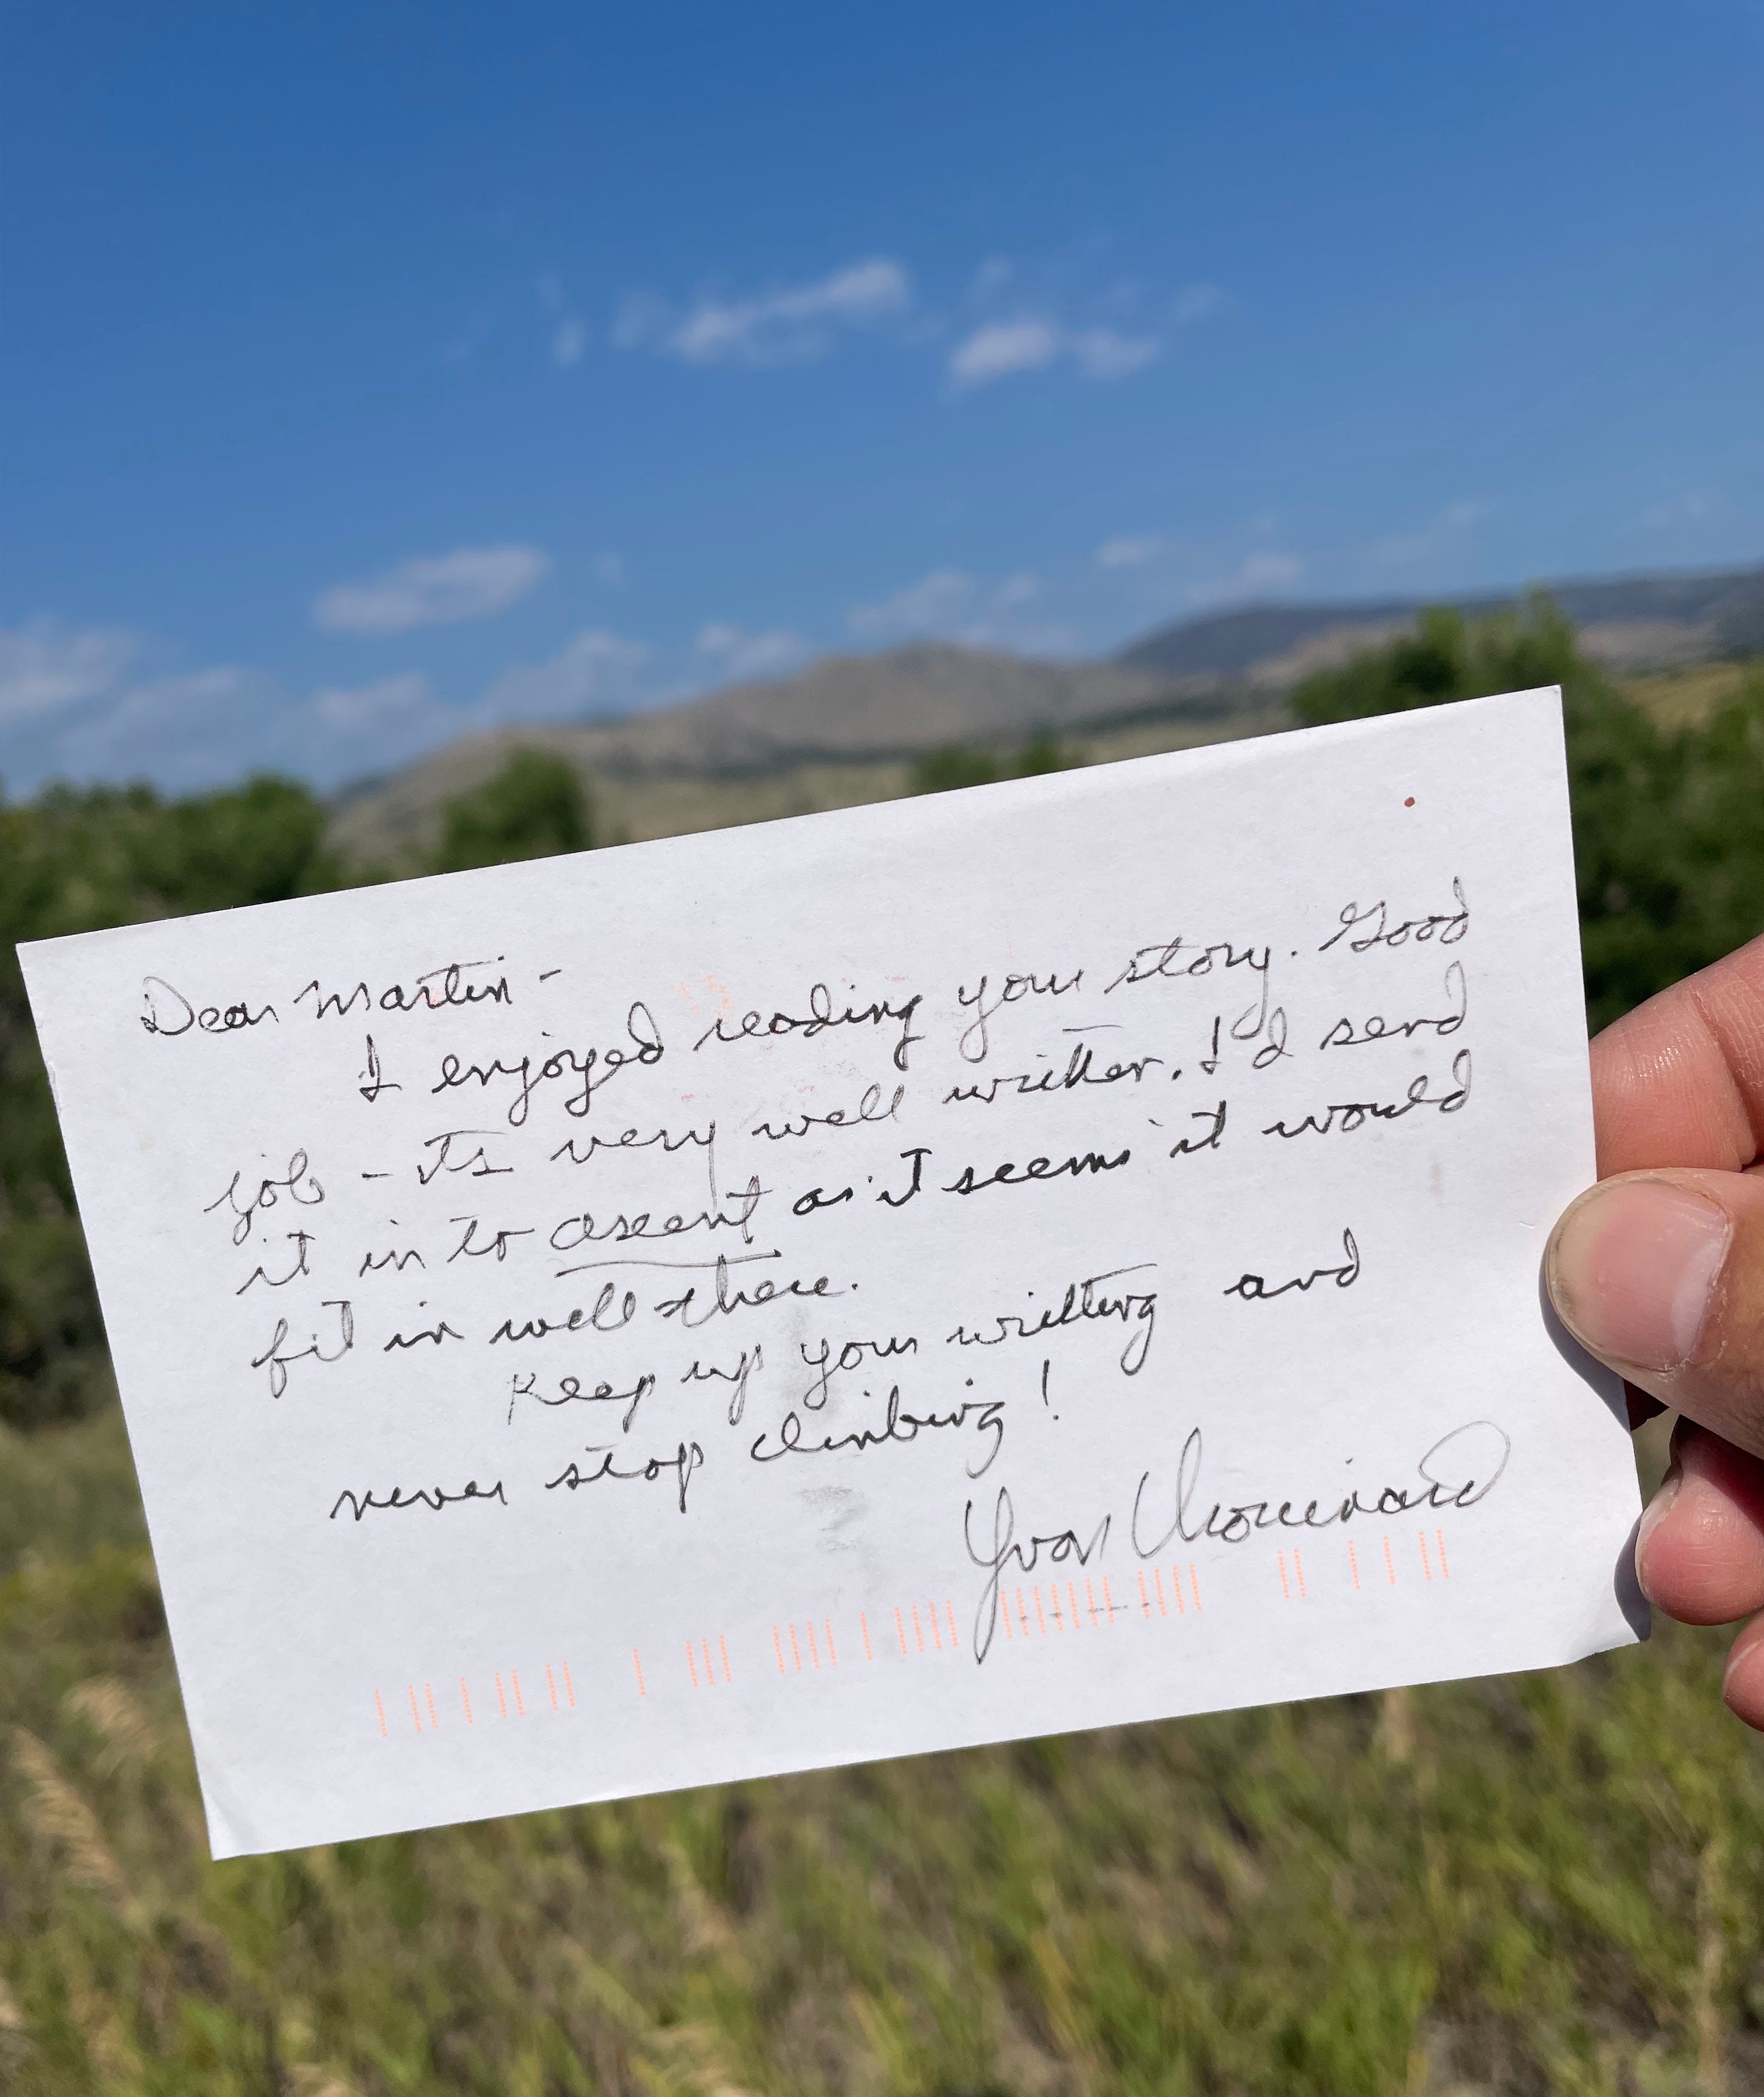 Dear Martin -
I enjoyed reading your story. Good
job - its very well written. I'd send
it in to ascent as it seems it would
fit in well there.
Keep up your writting and
never stop climbing!
Yvon Chouinard